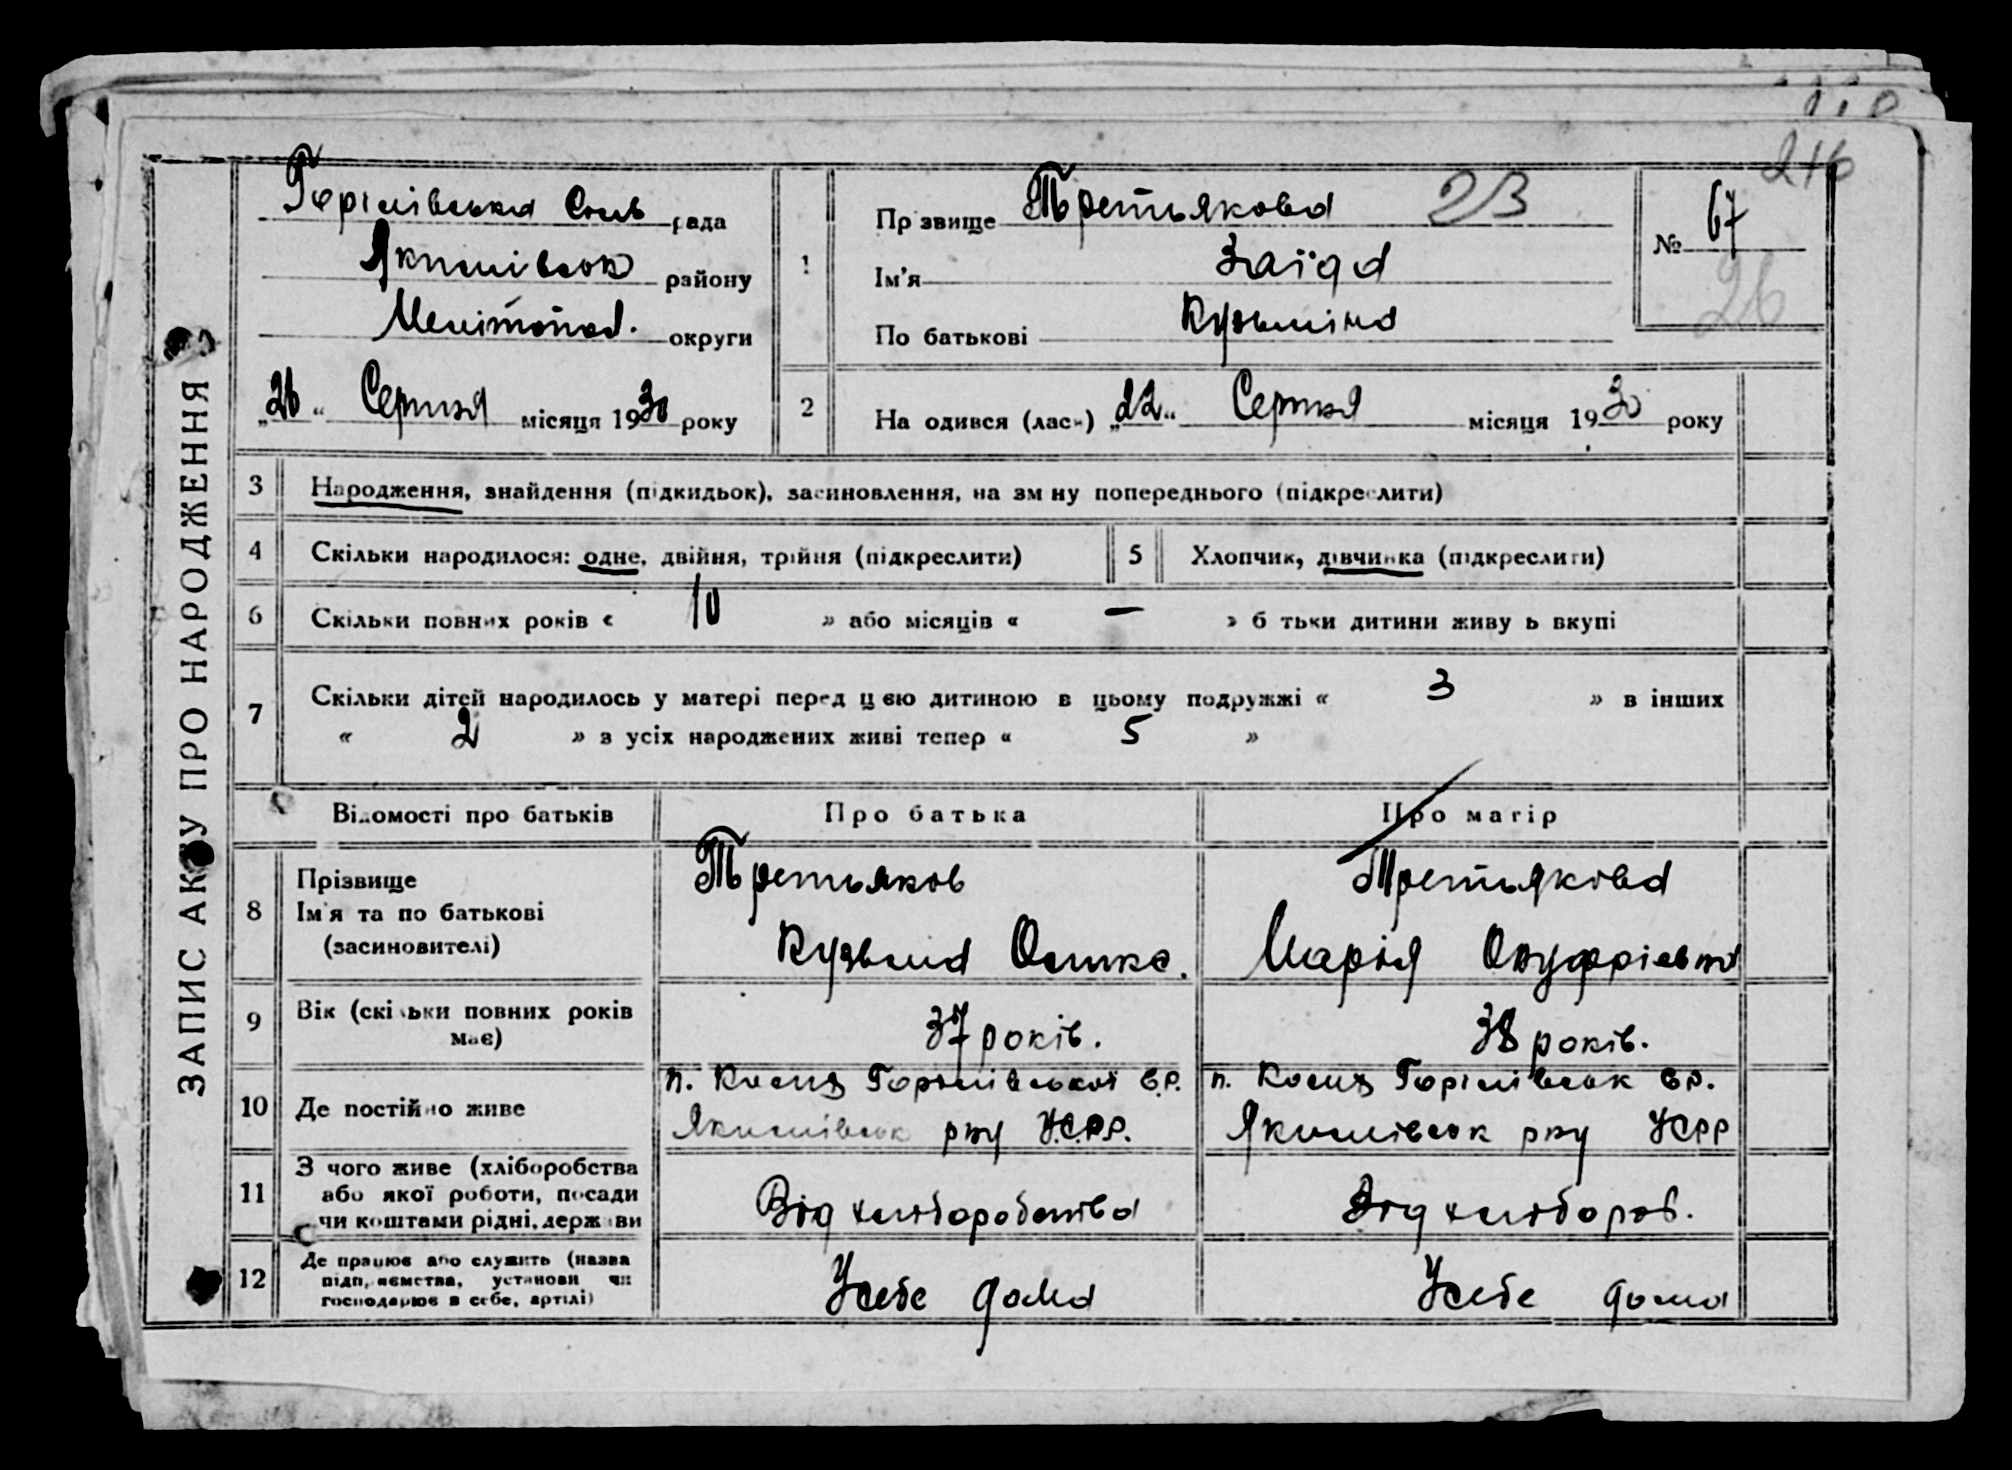 246
ЗАПИС АКТУ ПРО НАРОДЖЕННЯ
Горілівська Сіль рада
Якимівськ району
Мелітопол. округи
„26" Серпня місяця 1930 року
1
Прізвище Третьякова 23
Ім'я Заїда
По батькові Кузьміна
№ 67
26
2 На одився (лась) „22" Серпня місяця 1930 року
3 Народження, знайдення (підкидьок), засиновлення, на зміну попереднього (підкреслити)
4 Скільки народилося: одне, двійня, трійня (підкреслити)
5 Хлопчик, дівчинка (підкреслити)
6 Скільки повних років « 10 » або місяців « — » б тьки дитини живуть вкупі
7 Скільки дітей народилось у матері перед цією дитиною в цьому подружжі « 3 » в інших
« 2 » з усіх народжених живі тепер « 5 »
Відомості про батьків Про батька Про матір
8 Прізвище
Ім'я та по батькові
(засиновителі)
Третьяков
Кузьма
Третьякова
Марія Онуфрієвна
9 Вік (скільки повних років має)
37 років.
38 років.
10 Де постійно живе
п. Горілівської с.р.
Якимівськ рну У.С.Р.Р.
п. Горілівськ с.р.
Якимівськ рну УСРР
11 З чого живе (хліборобства
або якої роботи, посади
чи коштами рідні, держави
Від хліборобства
Від хлібороб.
12 Де працює або служить (назва
підприємства, установи чи
господарює в себе, артілі)
У себе дома
У себе дома